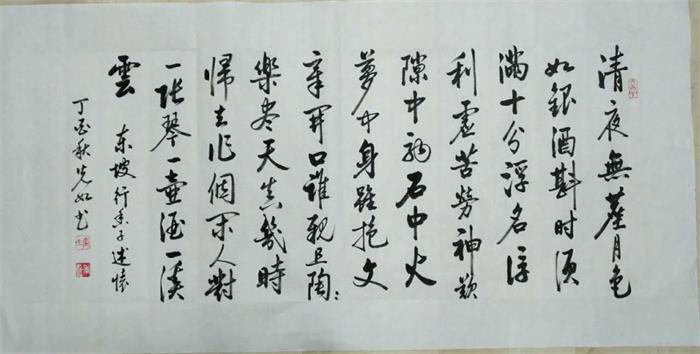 清夜無塵月色
如銀酒斟时須
滿十分浮名浮
利虛苦勞神歎
隙中駒石中火
夢中身雖抱文
章開口誰親且陶:
樂盡天真幾時
歸去作個閑人對
一張琴一壺酒一溪
雲
東坡行香子述懷
丁酉秋 如书